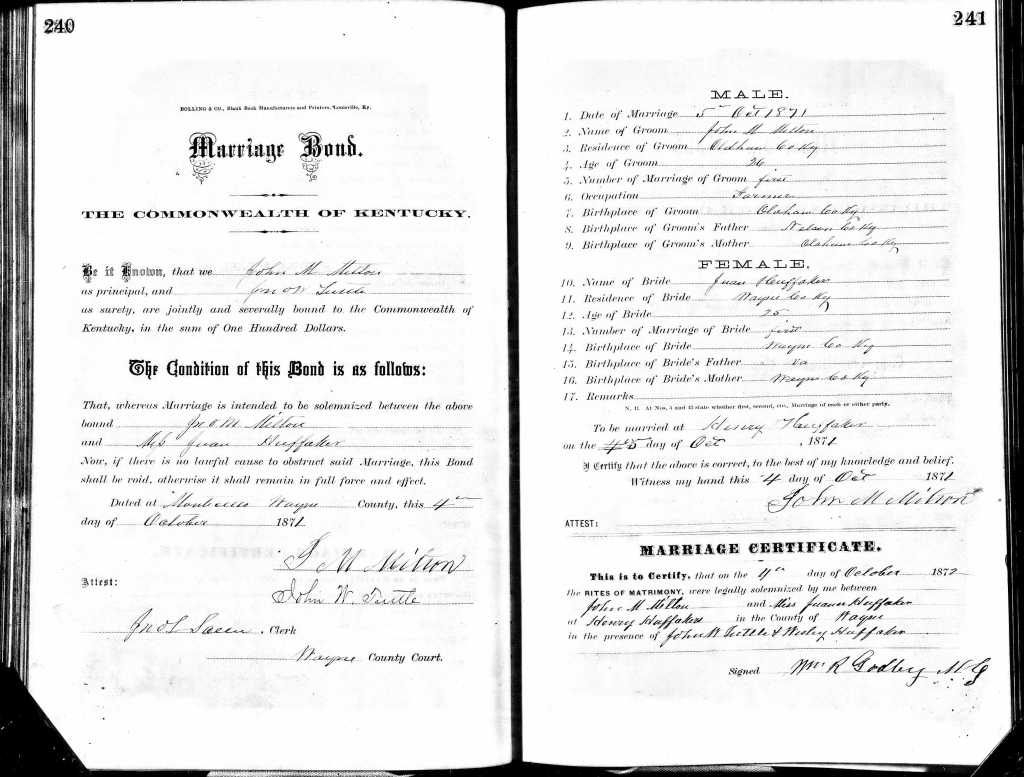 240
BOLLING & CO., Blank Book Manufacturers and Printers, Louisville, Ky.
Marriage Bond.
THE COMMONWEALTH OF KENTUCKY.
Be it Known, that we John M Milton
as principal, and Jno W Tuttle
as surety, are jointly and severally bound to the Commonwealth of
Kentucky, in the sum of One Hundred Dollars.
The Condition of this Bond is as follows:
That, whereas Marriage is intended to be solemnized between the above
bound Jno M Milton
and Miss Juan Huffaker
Now, if there is no lawful cause to obstruct said Marriage, this Bond
shall be void, otherwise it shall remain in full force and effect.
Dated at Monticello Wayne County, this 4th
day of October 1871
J M Milton
John W. Tuttle
Attest:
Jno S , Clerk
Wayne County Court.
241
MALE.
1. Date of Marriage 5th Oct 1871
2. Name of Groom John M Milton
3. Residence of Groom Oldham Co Ky
4. Age of Groom 26
5. Number of Marriage of Groom first
6. Occupation Farmer
7. Birthplace of Groom Oldham Co Ky
8. Birthplace of Groom's Father Nelson Co Ky
9. Birthplace of Groom's Mother Oldham Co Ky
FEMALE.
10. Name of Bride Juan Huffaker
11. Residence of Bride Wayne Co Ky
12. Age of Bride 25
13. Number of Marriage of Bride first
14. Birthplace of Bride Wayne Co Ky
15. Birthplace of Bride's Father Va
16. Birthplace of Bride's Mother Wayne Co Ky
17. Remarks
N. B. At Nos. 5 and 13 state whether first, second, etc., Marriage of each or either party.
To be married at Henry Huffaker
on the 5 day of Oct , 1871
I Certify that the above is correct, to the best of my knowledge and belief.
Witness my hand this 4 day of Oct 1871
John M Milton
ATTEST:
MARRIAGE CERTIFICATE.
This is to Certify, that on the 4th day of October 1872
the RITES OF MATRIMONY, were legally solemnized by me between
John M Milton and Miss Juan Huffaker
at Henry Huffakers in the County of Wayne
in the presence of John W Tuttle & Wesley Huffaker
Signed Wm R Godbey M G